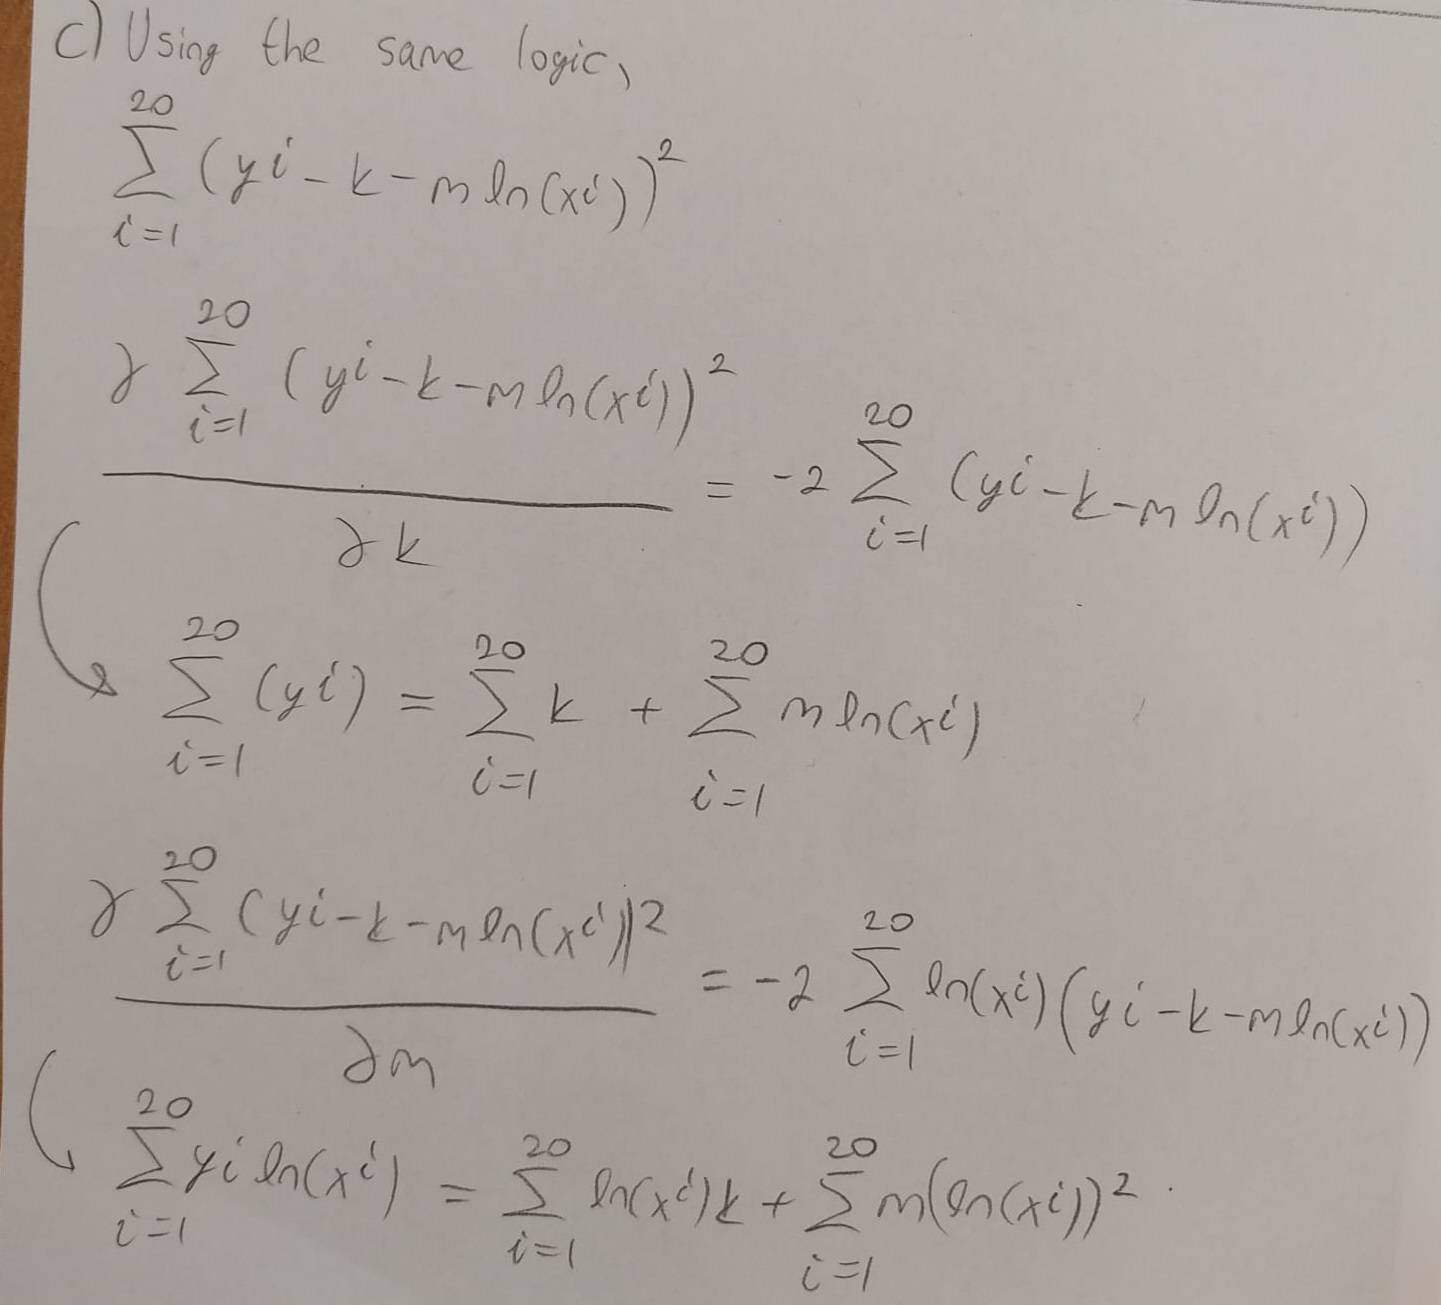 c) Using the same logic,
\sum_{i=1}^{20} (yi - k - m ln(xi))^2
\frac{∂ \sum_{i=1}^{20} (yi - k - m ln(xi))^2}{∂k} = -2 \sum_{i=1}^{20} (yi - k - m ln(xi))
\sum_{i=1}^{20} (yi) = \sum_{i=1}^{20} k + \sum_{i=1}^{20} m ln(xi)
\frac{∂ \sum_{i=1}^{20} (yi - k - m ln(xi))^2}{∂m} = -2 \sum_{i=1}^{20} ln(xi)(yi - k - m ln(xi))
\sum_{i=1}^{20} yi ln(xi) = \sum_{i=1}^{20} ln(xi)k + \sum_{i=1}^{20} m(ln(xi))^2.